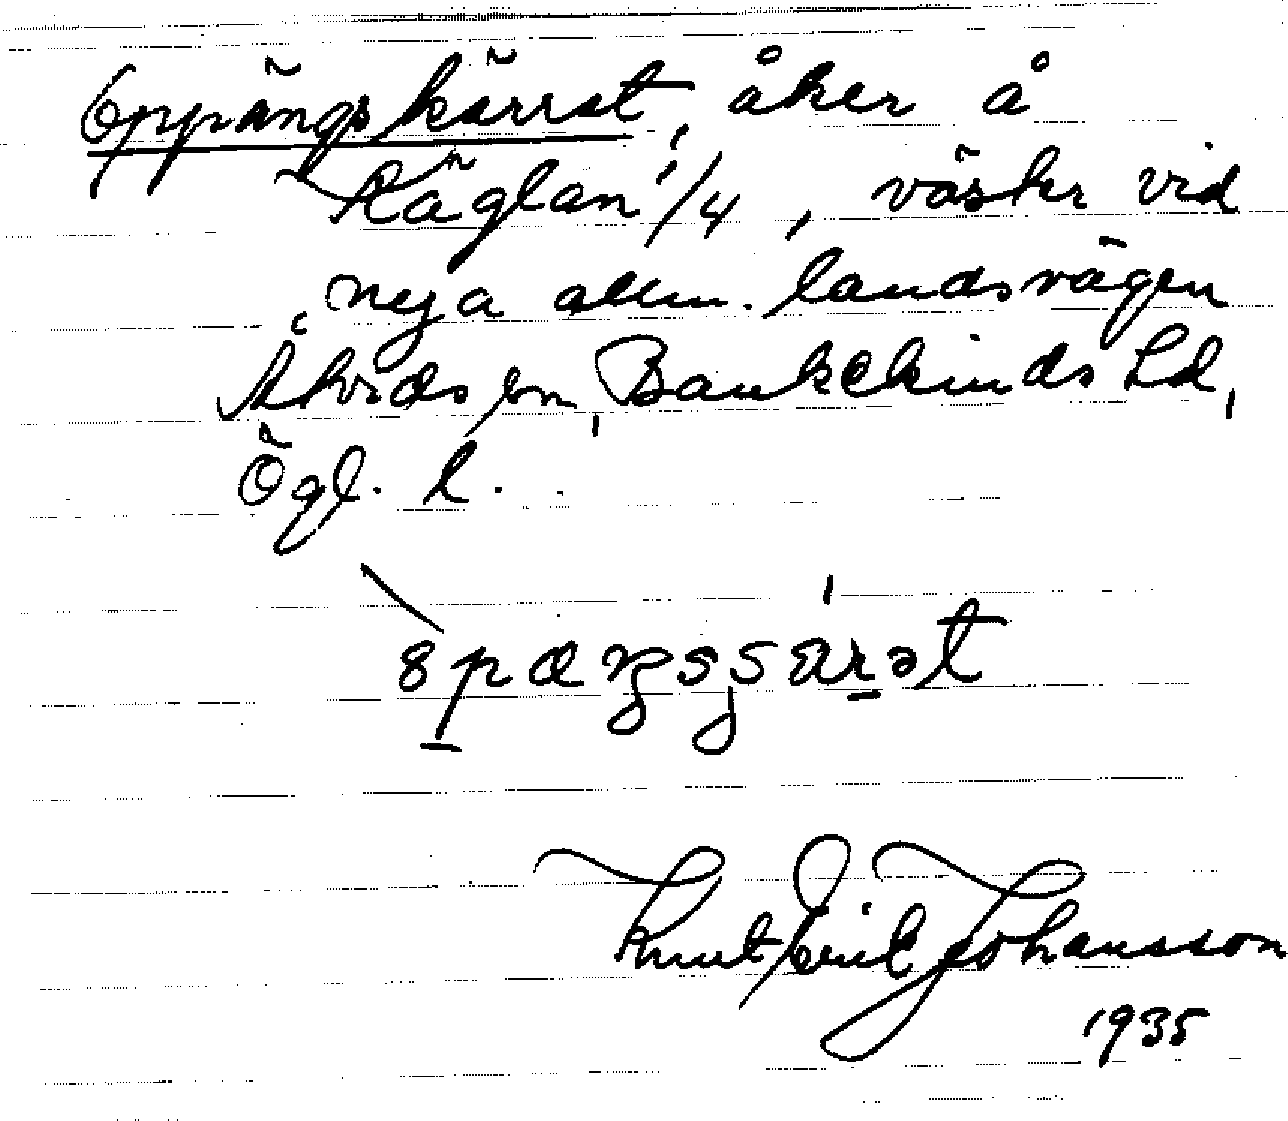 Öppängskärret, åker å
Käglan 1/4, väster vid
nya allm. landsvägen
Åtvids sn, Bankekinds hd,
Ögl. l.
Knut Erik Johansson
1935